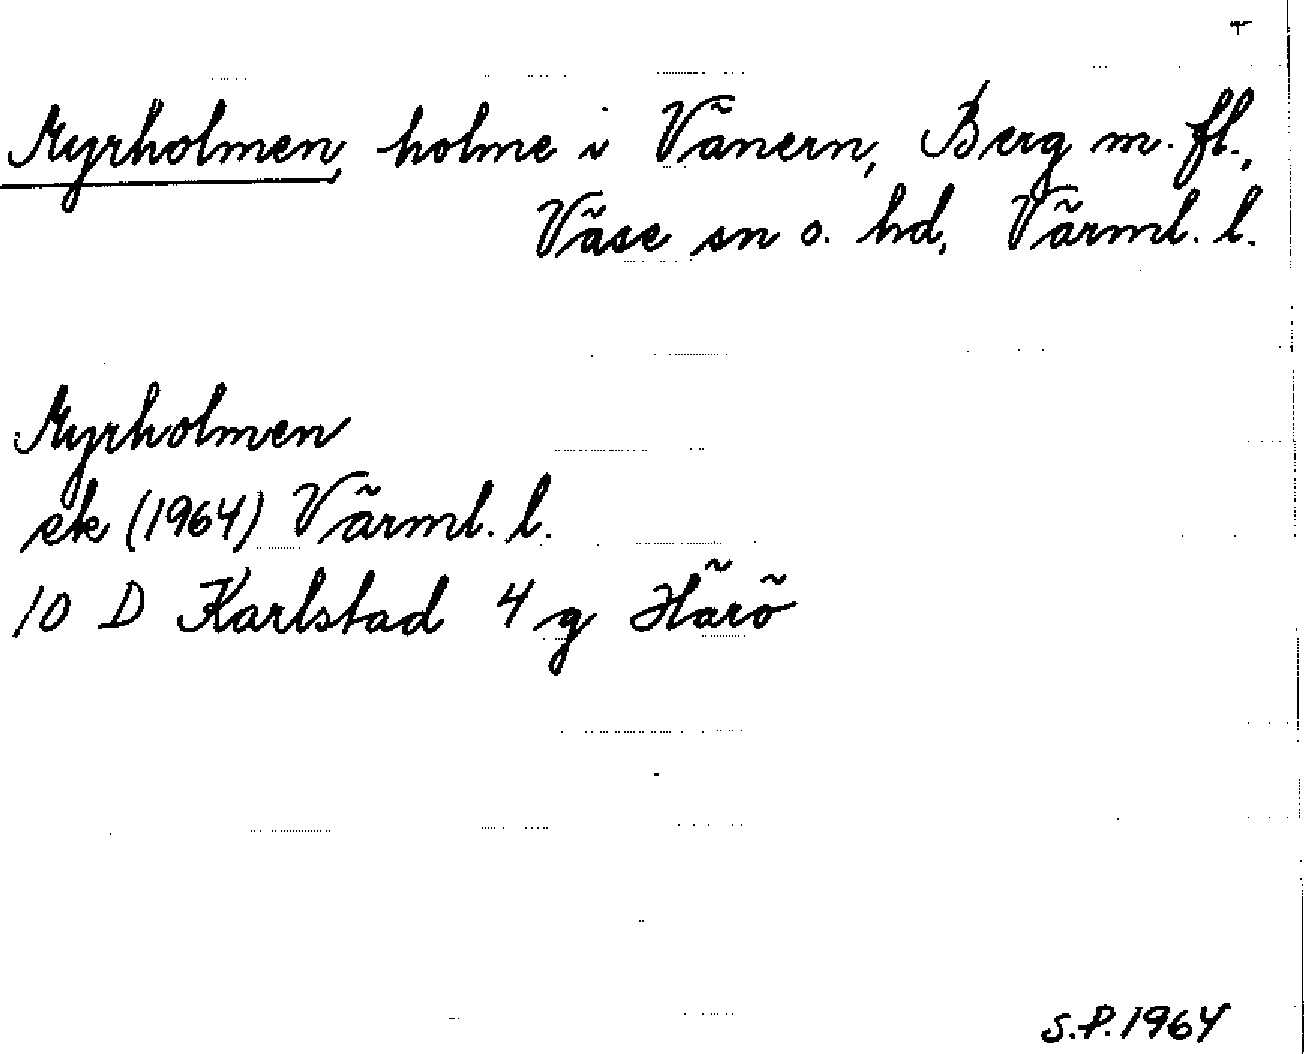 Myrholmen, holme i Vänern, Berg m. fl.,
Väse sn o. hd, Värml. l.
Myrholmen
ek (1964) Värml. l.
10 D Karlstad 4 g Härö
S.P. 1964